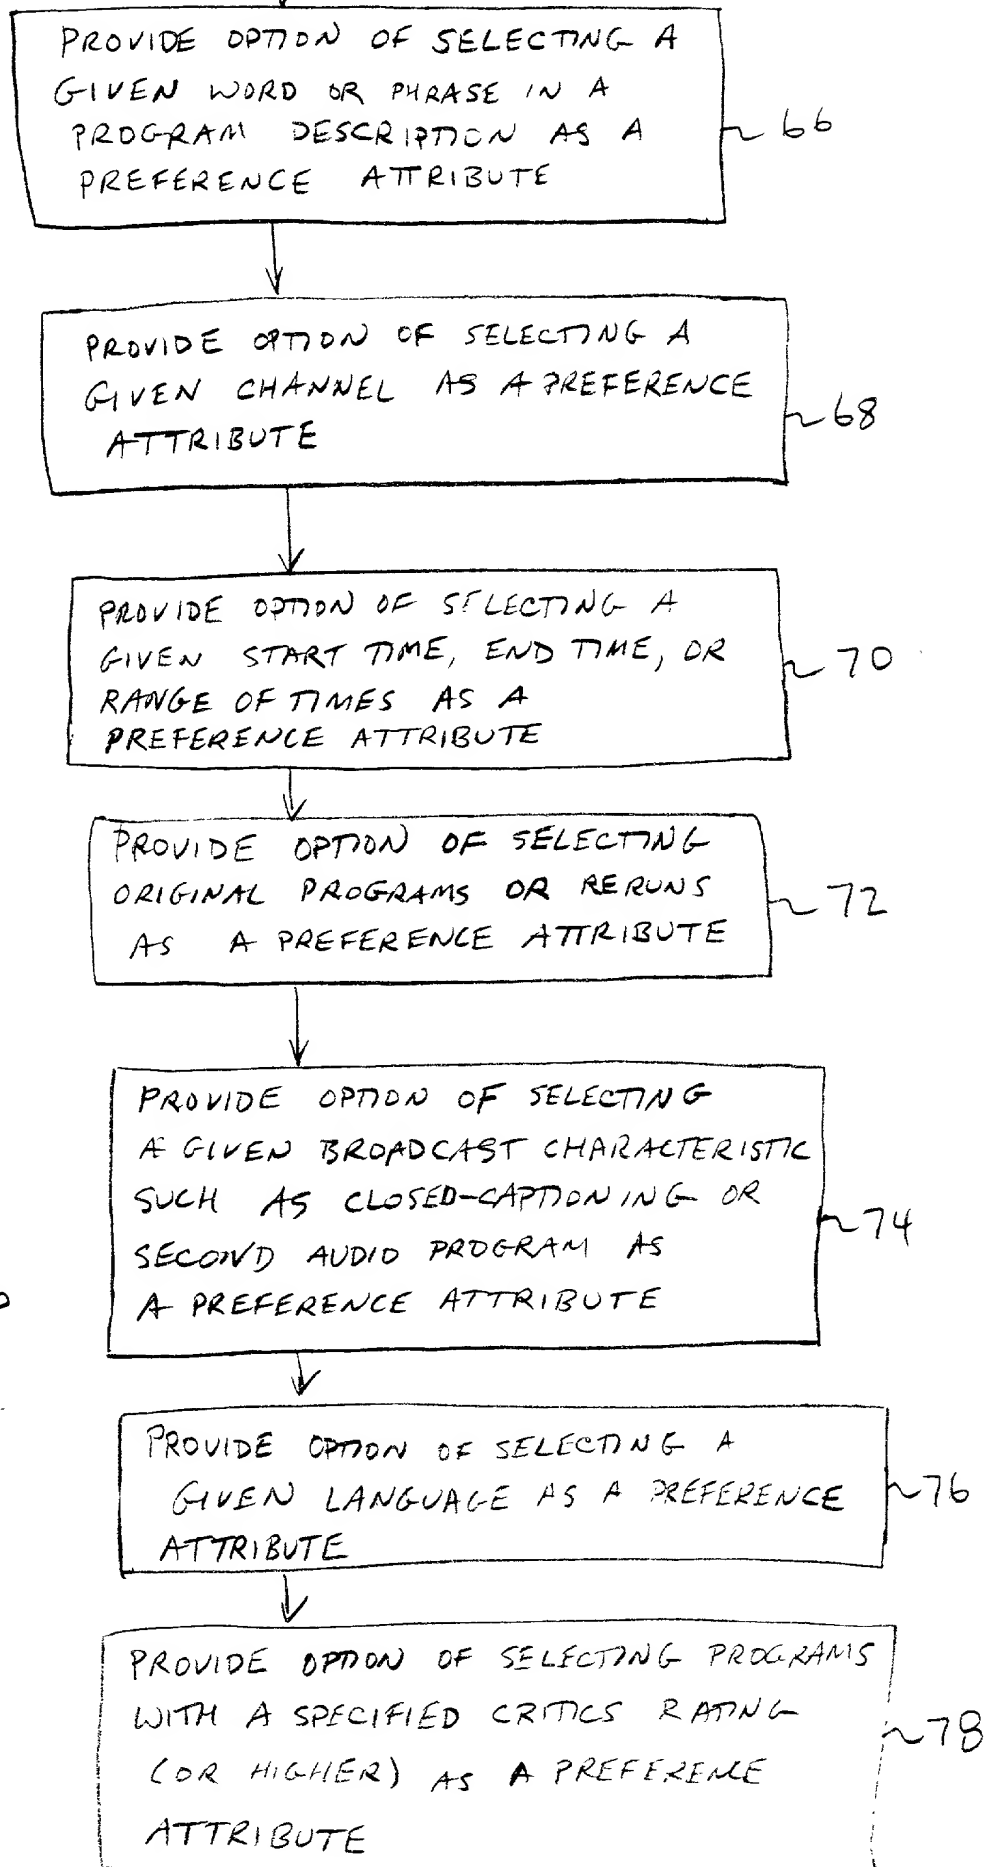 PROVIDE OPTION OF SELECTING A
GIVEN WORD OR PHRASE IN A
PROGRAM DESCRIPTION AS A
PREFERENCE ATTRIBUTE
66
PROVIDE OPTION OF SELECTING A
GIVEN CHANNEL AS A PREFERENCE
ATTRIBUTE
68
PROVIDE OPTION OF SELECTING A
GIVEN START TIME, END TIME, OR
RANGE OF TIMES AS A
PREFERENCE ATTRIBUTE
70
PROVIDE OPTION OF SELECTING
ORIGINAL PROGRAMS OR RERUNS
AS A PREFERENCE ATTRIBUTE
72
PROVIDE OPTION OF SELECTING
A GIVEN BROADCAST CHARACTERISTIC
SUCH AS CLOSED-CAPTIONING OR
SECOND AUDIO PROGRAM AS
A PREFERENCE ATTRIBUTE
74
PROVIDE OPTION OF SELECTING A
GIVEN LANGUAGE AS A PREFERENCE
ATTRIBUTE
76
PROVIDE OPTION OF SELECTING PROGRAMS
WITH A SPECIFIED CRITICS RATING
(OR HIGHER) AS A PREFERENCE
ATTRIBUTE
78